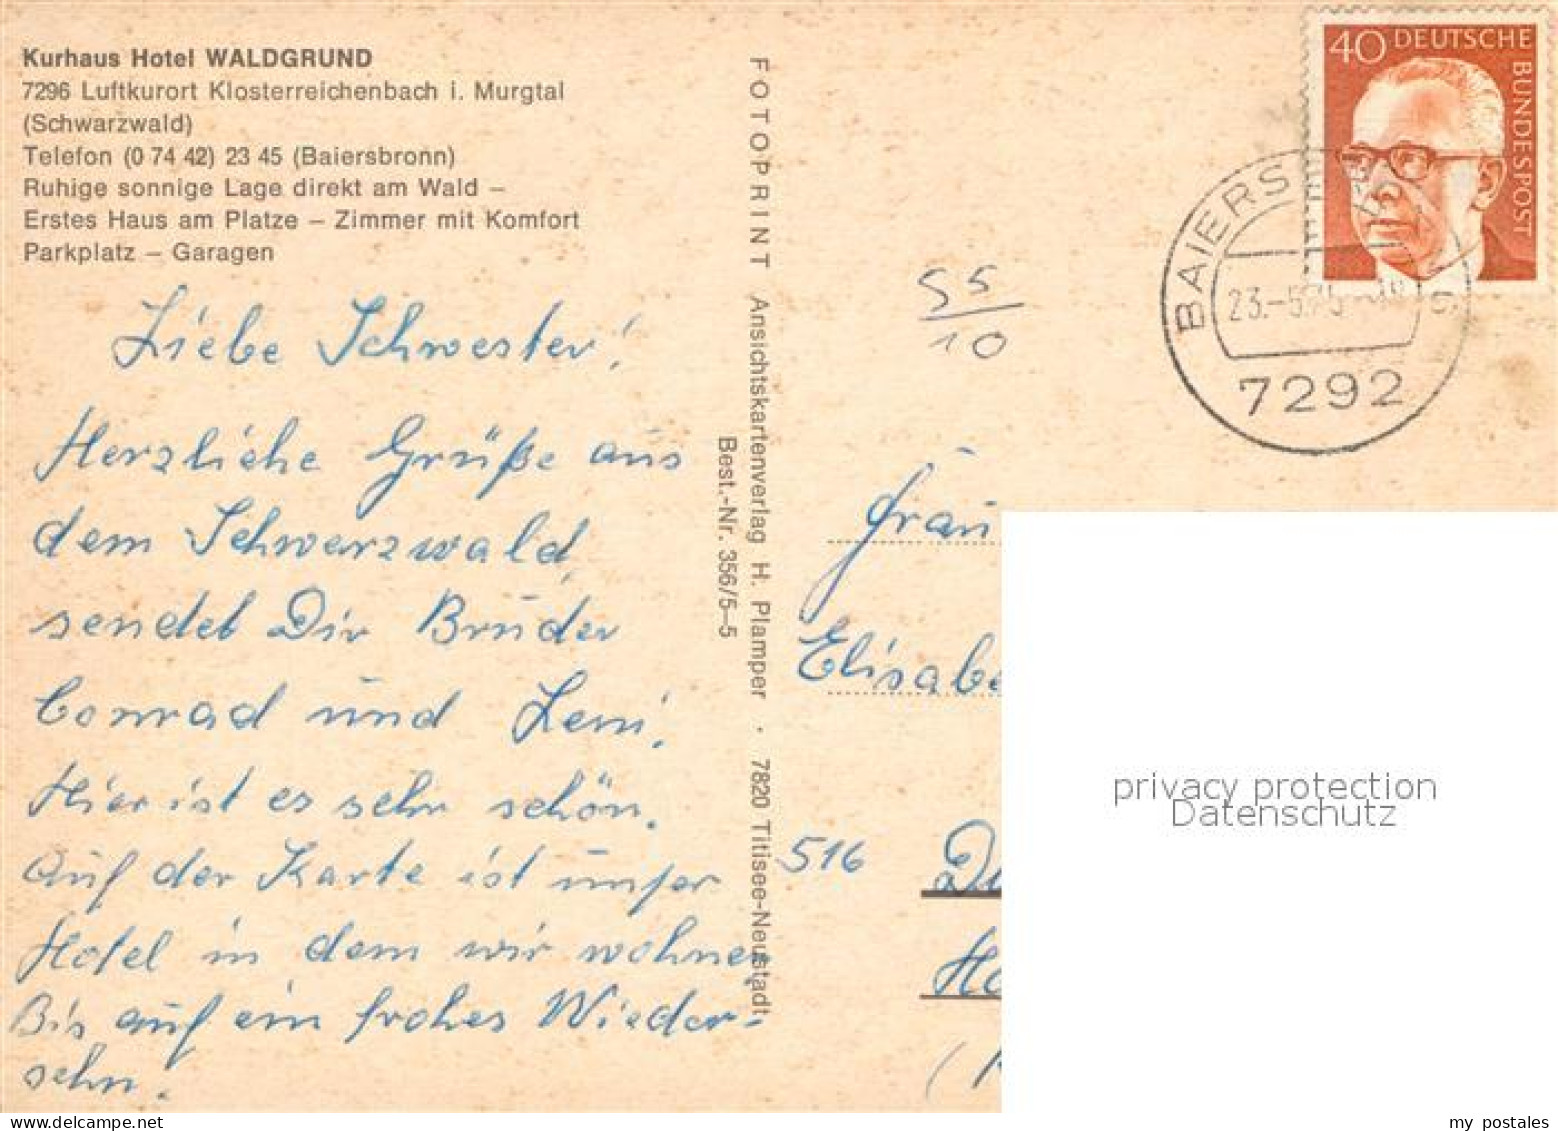 Kurhaus Hotel WALDGRUND
7296 Luftkurort Klosterreichenbach i. Murgtal
(Schwarzwald)
Telefon (0 74 42) 23 45 (Baiersbronn)
Ruhige sonnige Lage direkt am Wald –
Erstes Haus am Platze – Zimmer mit Komfort
Parkplatz – Garagen
Liebe Schwester!
Herzliche Grüße aus
dem Schwarzwald,
sendet Dir Bruder
Conrad und Leni.
Hier ist es sehr schön.
Auf der Karte ist unser
Hotel in dem wir wohnen
Bis auf ein frohes Wieder-
sehn.
FOTOPRINT Ansichtskartenverlag H. Plamper · 7820 Titisee-Neustadt
Best.-Nr. 356/5–5
55
10
40 DEUTSCHE
BUNDESPOST
BAIERS
23.-5.75
7292
Frau
Elisabe
516 Dü
Ho
privacy protection
Datenschutz
my postales